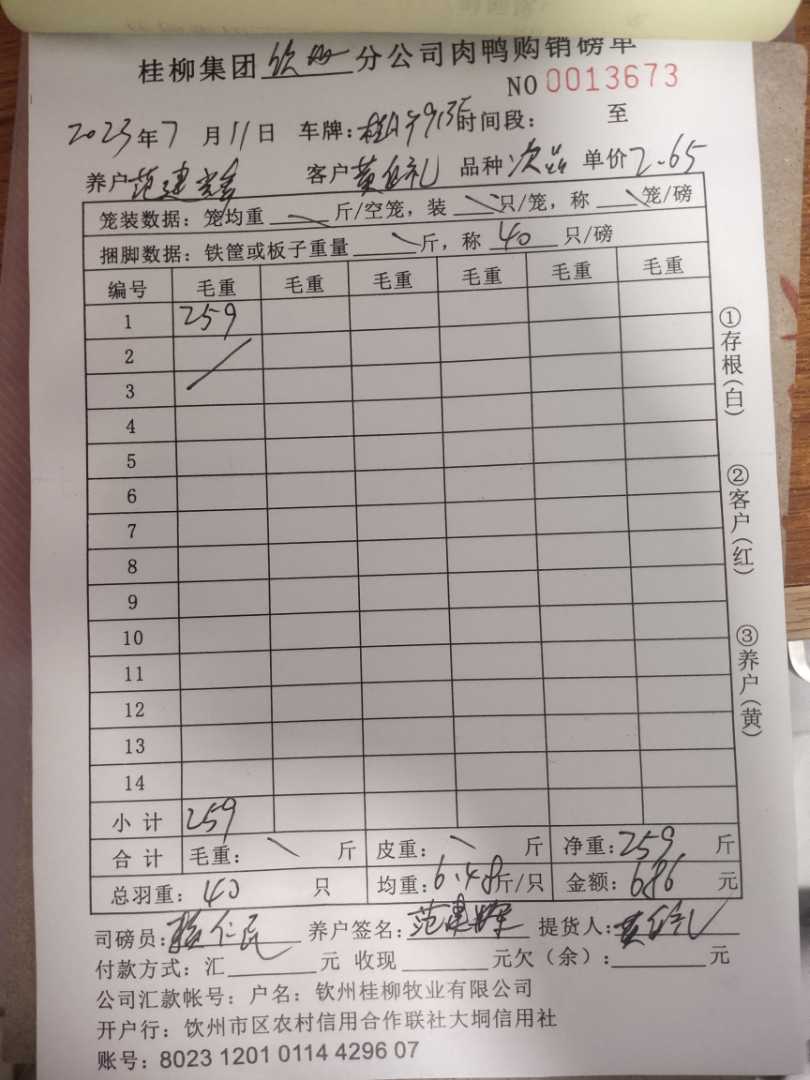 桂柳集团 钦州 分公司肉鸭购销磅单
NO 0013673
2023年7月11日 车牌: 时间段: 至
养户范建辉 客户黄 礼 品种次品 单价2.65
笼装数据:笼均重 \ 斤/空笼,装 \ 只/笼,称 \ 笼/磅
捆脚数据:铁筐或板子重量 \ 斤,称 40 只/磅
编号 毛重 毛重 毛重 毛重 毛重 毛重
1 259
2
3
4
5
6
7
8
9
10
11
12
13
14
小计 259
合计 毛重: \ 斤 皮重: \ 斤 净重:259 斤
总羽重:40 只 均重:6.48斤/只 金额:686 元
司磅员: 养户签名:范建辉 提货人:黄 礼
付款方式:汇 元 收现 元欠(余): 元
公司汇款帐号:户名:钦州桂柳牧业有限公司
开户行:钦州市区农村信用合作联社大垌信用社
账号:8023 1201 0114 4296 07
①存根(白)
②客户(红)
③养户(黄)